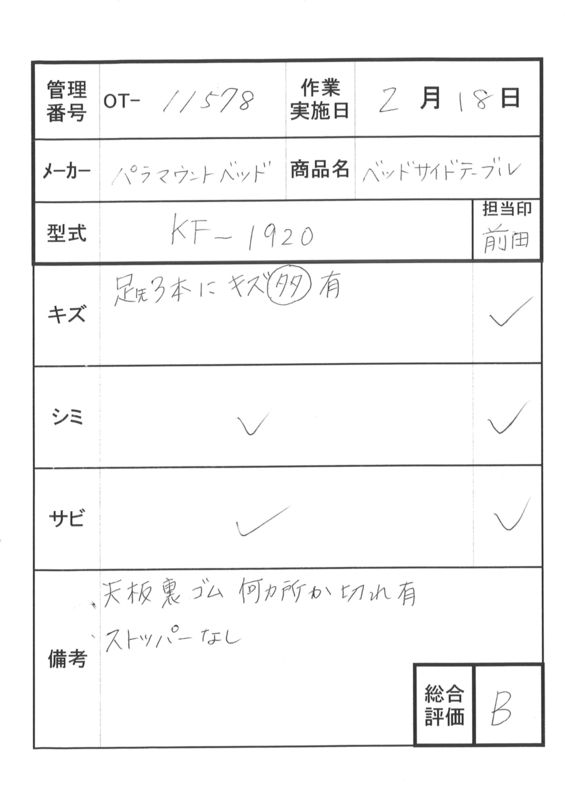 管理番号 OT- 11578 作業実施日 2月18日
メーカー パラマウントベッド 商品名 ベッドサイドテーブル
型式 KF-1920 担当印 前田
キズ 足先3本にキズ多有 ✓
シミ ✓ ✓
サビ ✓ ✓
備考
・天板裏ゴム何カ所か切れ有
・ストッパーなし
総合評価 B